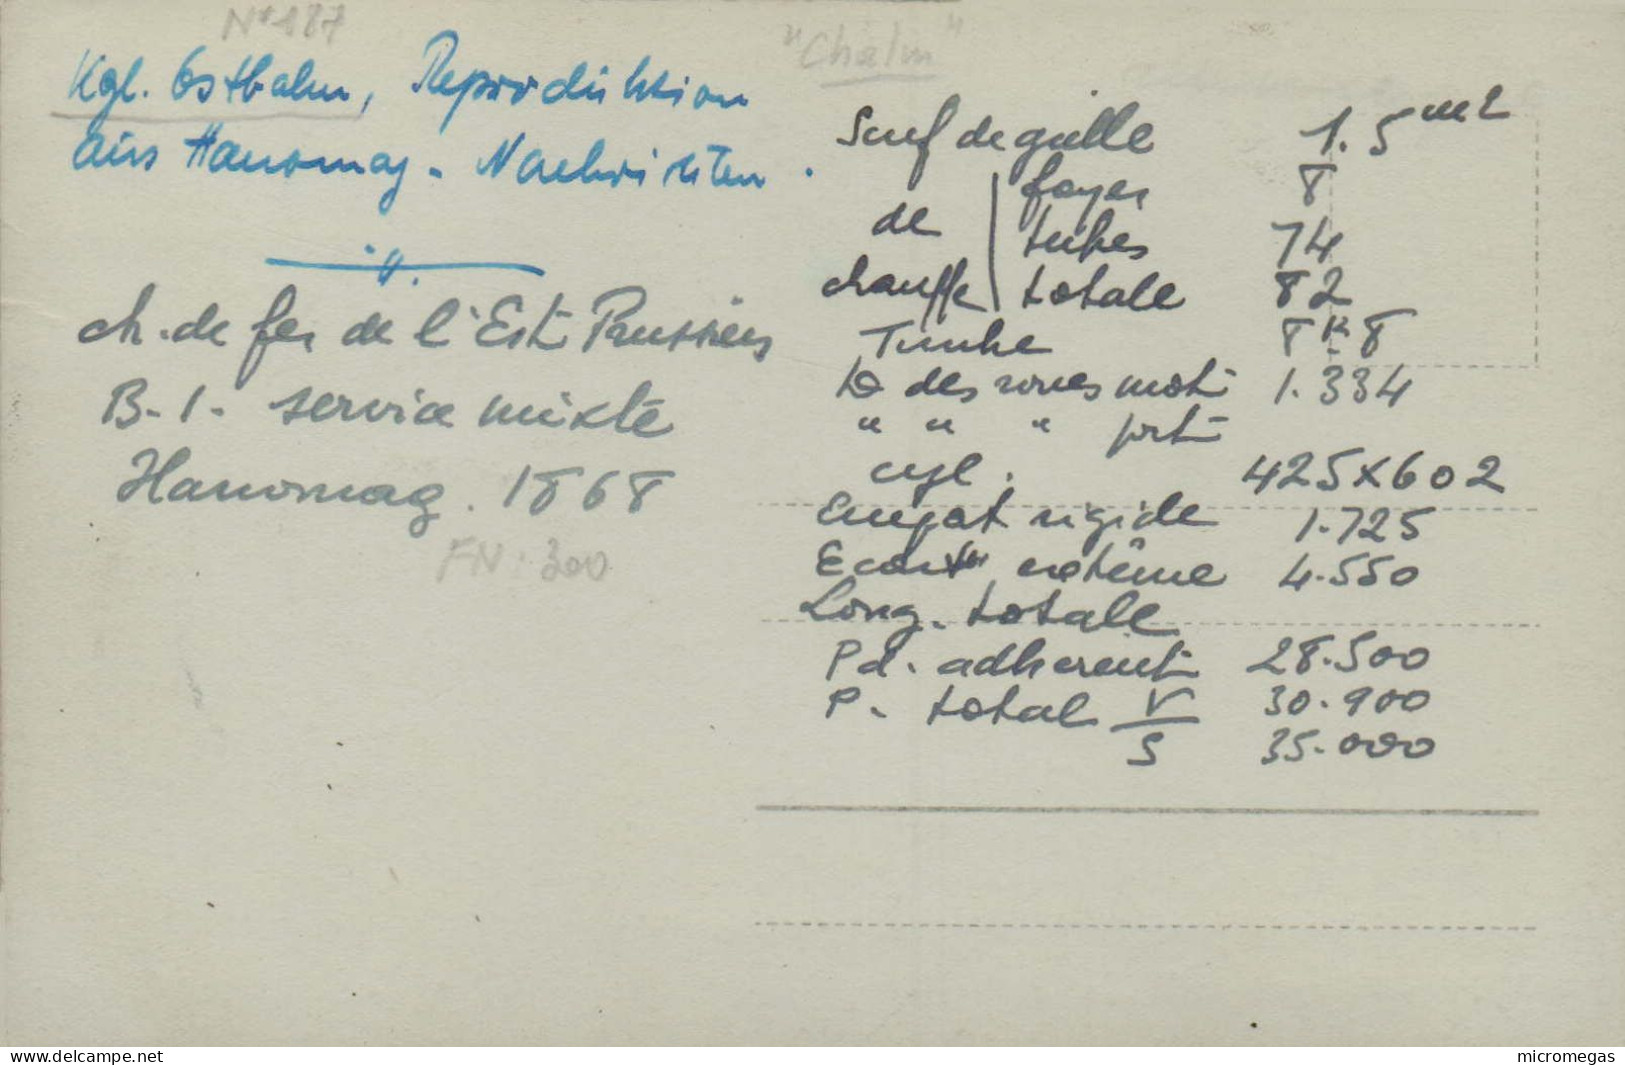 N° 187
Kgl. Ostbahn, Reproduktion
aus Hanomag - Nachrichten.
ch. de fer de l'Est Prussiens
B-1- service mixte
Hanomag. 1868
FN: 300
"Chalm"
Surf de grille 1.5 m2
de chauffe
foyer 8
tubes 74
totale 82
Timbre 8K8
D des roues mot 1.334
" " " port
cyl. 425x602
Empat rigide 1.725
Ecart extême 4.550
Long. totale
Pd. adherent 28.500
P. total V 30.900
S 35.000
www.delcampe.net
micromegas